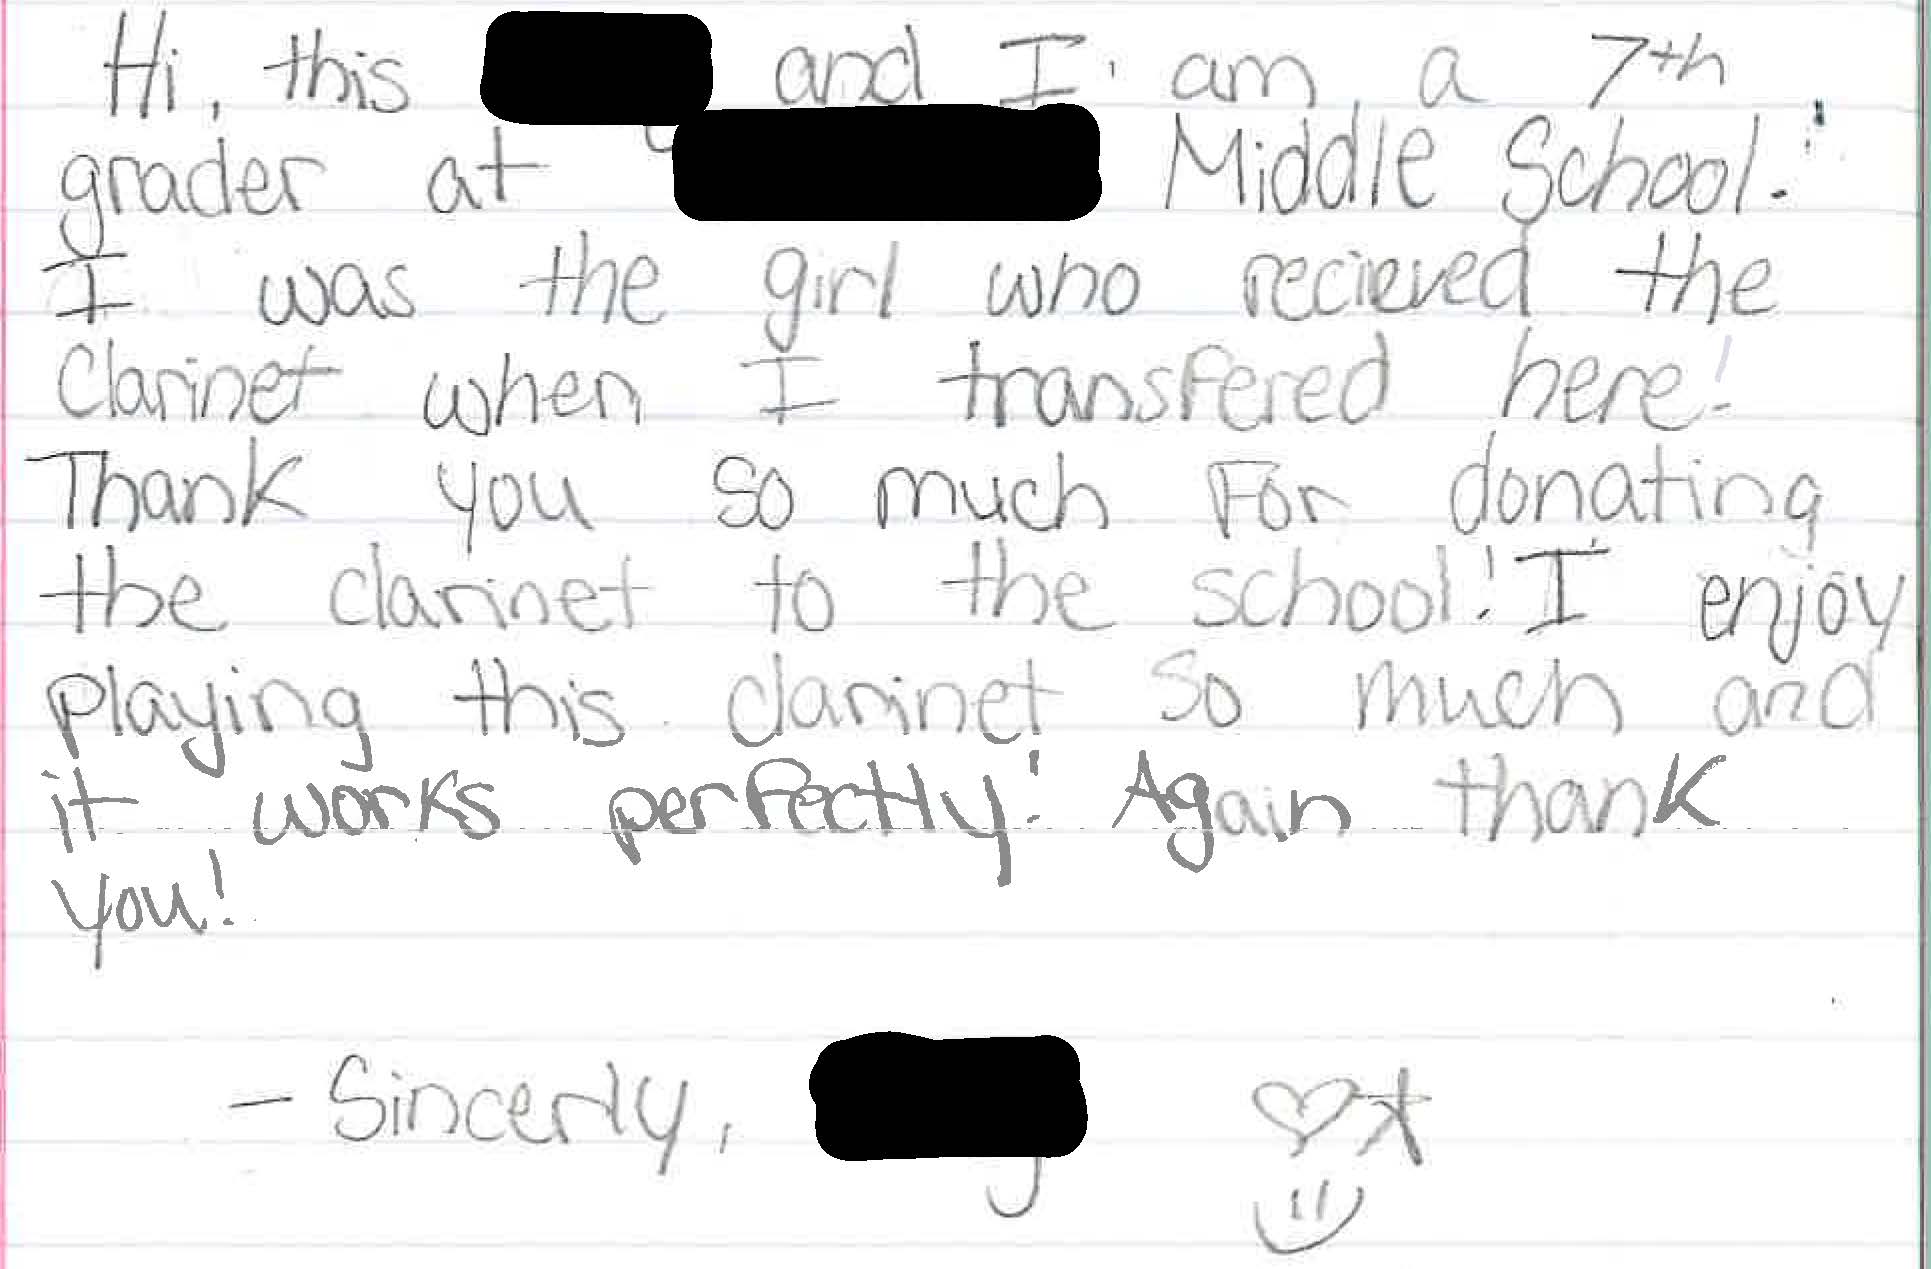 Hi, this and I am a 7th
grader at Middle School.
I was the girl who recieved the
Clarinet when I transfered here!
Thank you so much For donating
the clarinet to the school! I enjoy
playing this clarinet so much and
it works perfectly! Again thank
you!
- Sincerly,